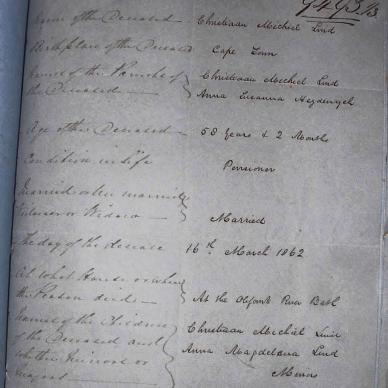 9493/3
Name of the Deceased - Christiaan Michiel Lind
Birthplace of the Deceased Cape Town
Names of the Parents of Christiaan Michiel Lind
the Deceased — Anna Susanna Heydenrych
Age of the Deceased - 58 Years & 2 Months
Condition in Life Pensioner
Married or Unmarried
Widower or Widow — Married
The day of the decease 16th March 1862
At what House or where
the Person died — At the Olifants River Bath
Names of the Children Christiaan Michiel Lind
of the Deceased and Anna Magdelana Lind
whether Minors or Minors
Majors —